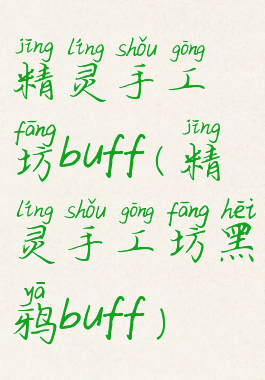 jīng líng shǒu gōng
精灵手工
fāng jīng
坊buff(精
líng shǒu gōng fāng hēi
灵手工坊黑
yā
鸦buff)